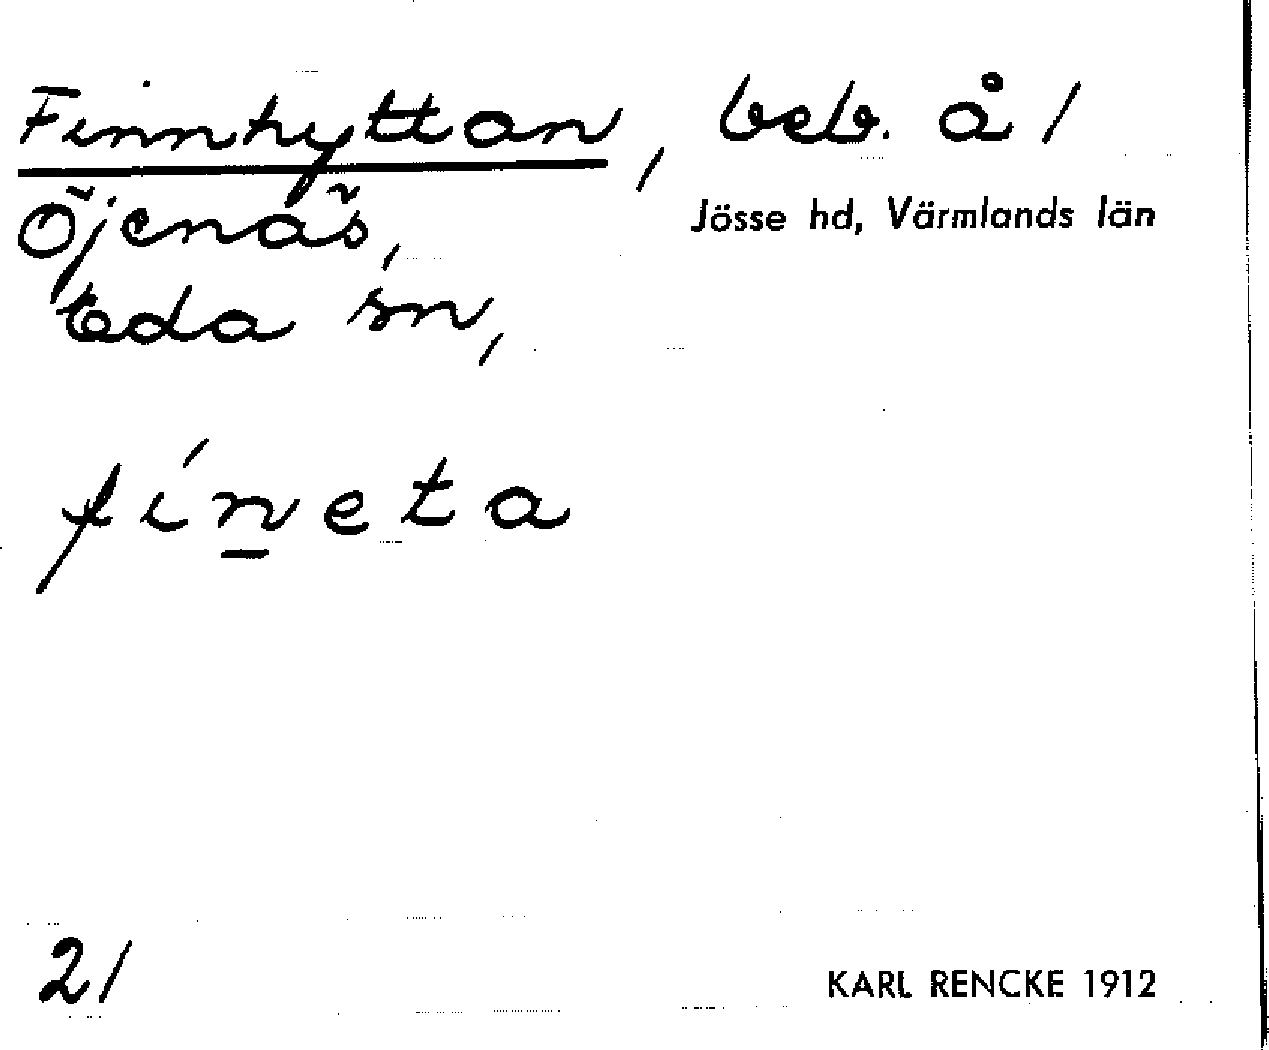 Finnhyttan, beb. å 1
Öjenäs,
Jösse hd, Värmlands län
Eda sn,
fíṉeta
21
KARL RENCKE 1912